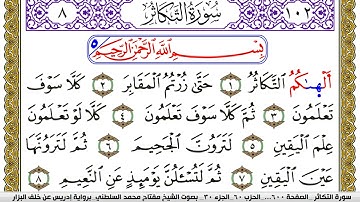 ٨ سُورَةُ التَّكَاثُرِ ١٠٢
بِسْمِ اللَّهِ الرَّحْمَٰنِ الرَّحِيمِ
أَلْهَىٰكُمُ التَّكَاثُرُ ١ حَتَّىٰ زُرْتُمُ الْمَقَابِرَ ٢ كَلَّا سَوْفَ
تَعْلَمُونَ ٣ ثُمَّ كَلَّا سَوْفَ تَعْلَمُونَ ٤ كَلَّا لَوْ تَعْلَمُونَ
عِلْمَ الْيَقِينِ ٥ لَتَرَوُنَّ الْجَحِيمَ ٦ ثُمَّ لَتَرَوُنَّهَا
عَيْنَ الْيَقِينِ ٧ ثُمَّ لَتُسْـَٔلُنَّ يَوْمَئِذٍ عَنِ النَّعِيمِ ٨
سورة التكاثر. الصفحة ٦٠٠... الحزب ٦٠. الجزء ٣٠. بصوت الشيخ مفتاح محمد السلطني. برواية إدريس عن خلف البزار